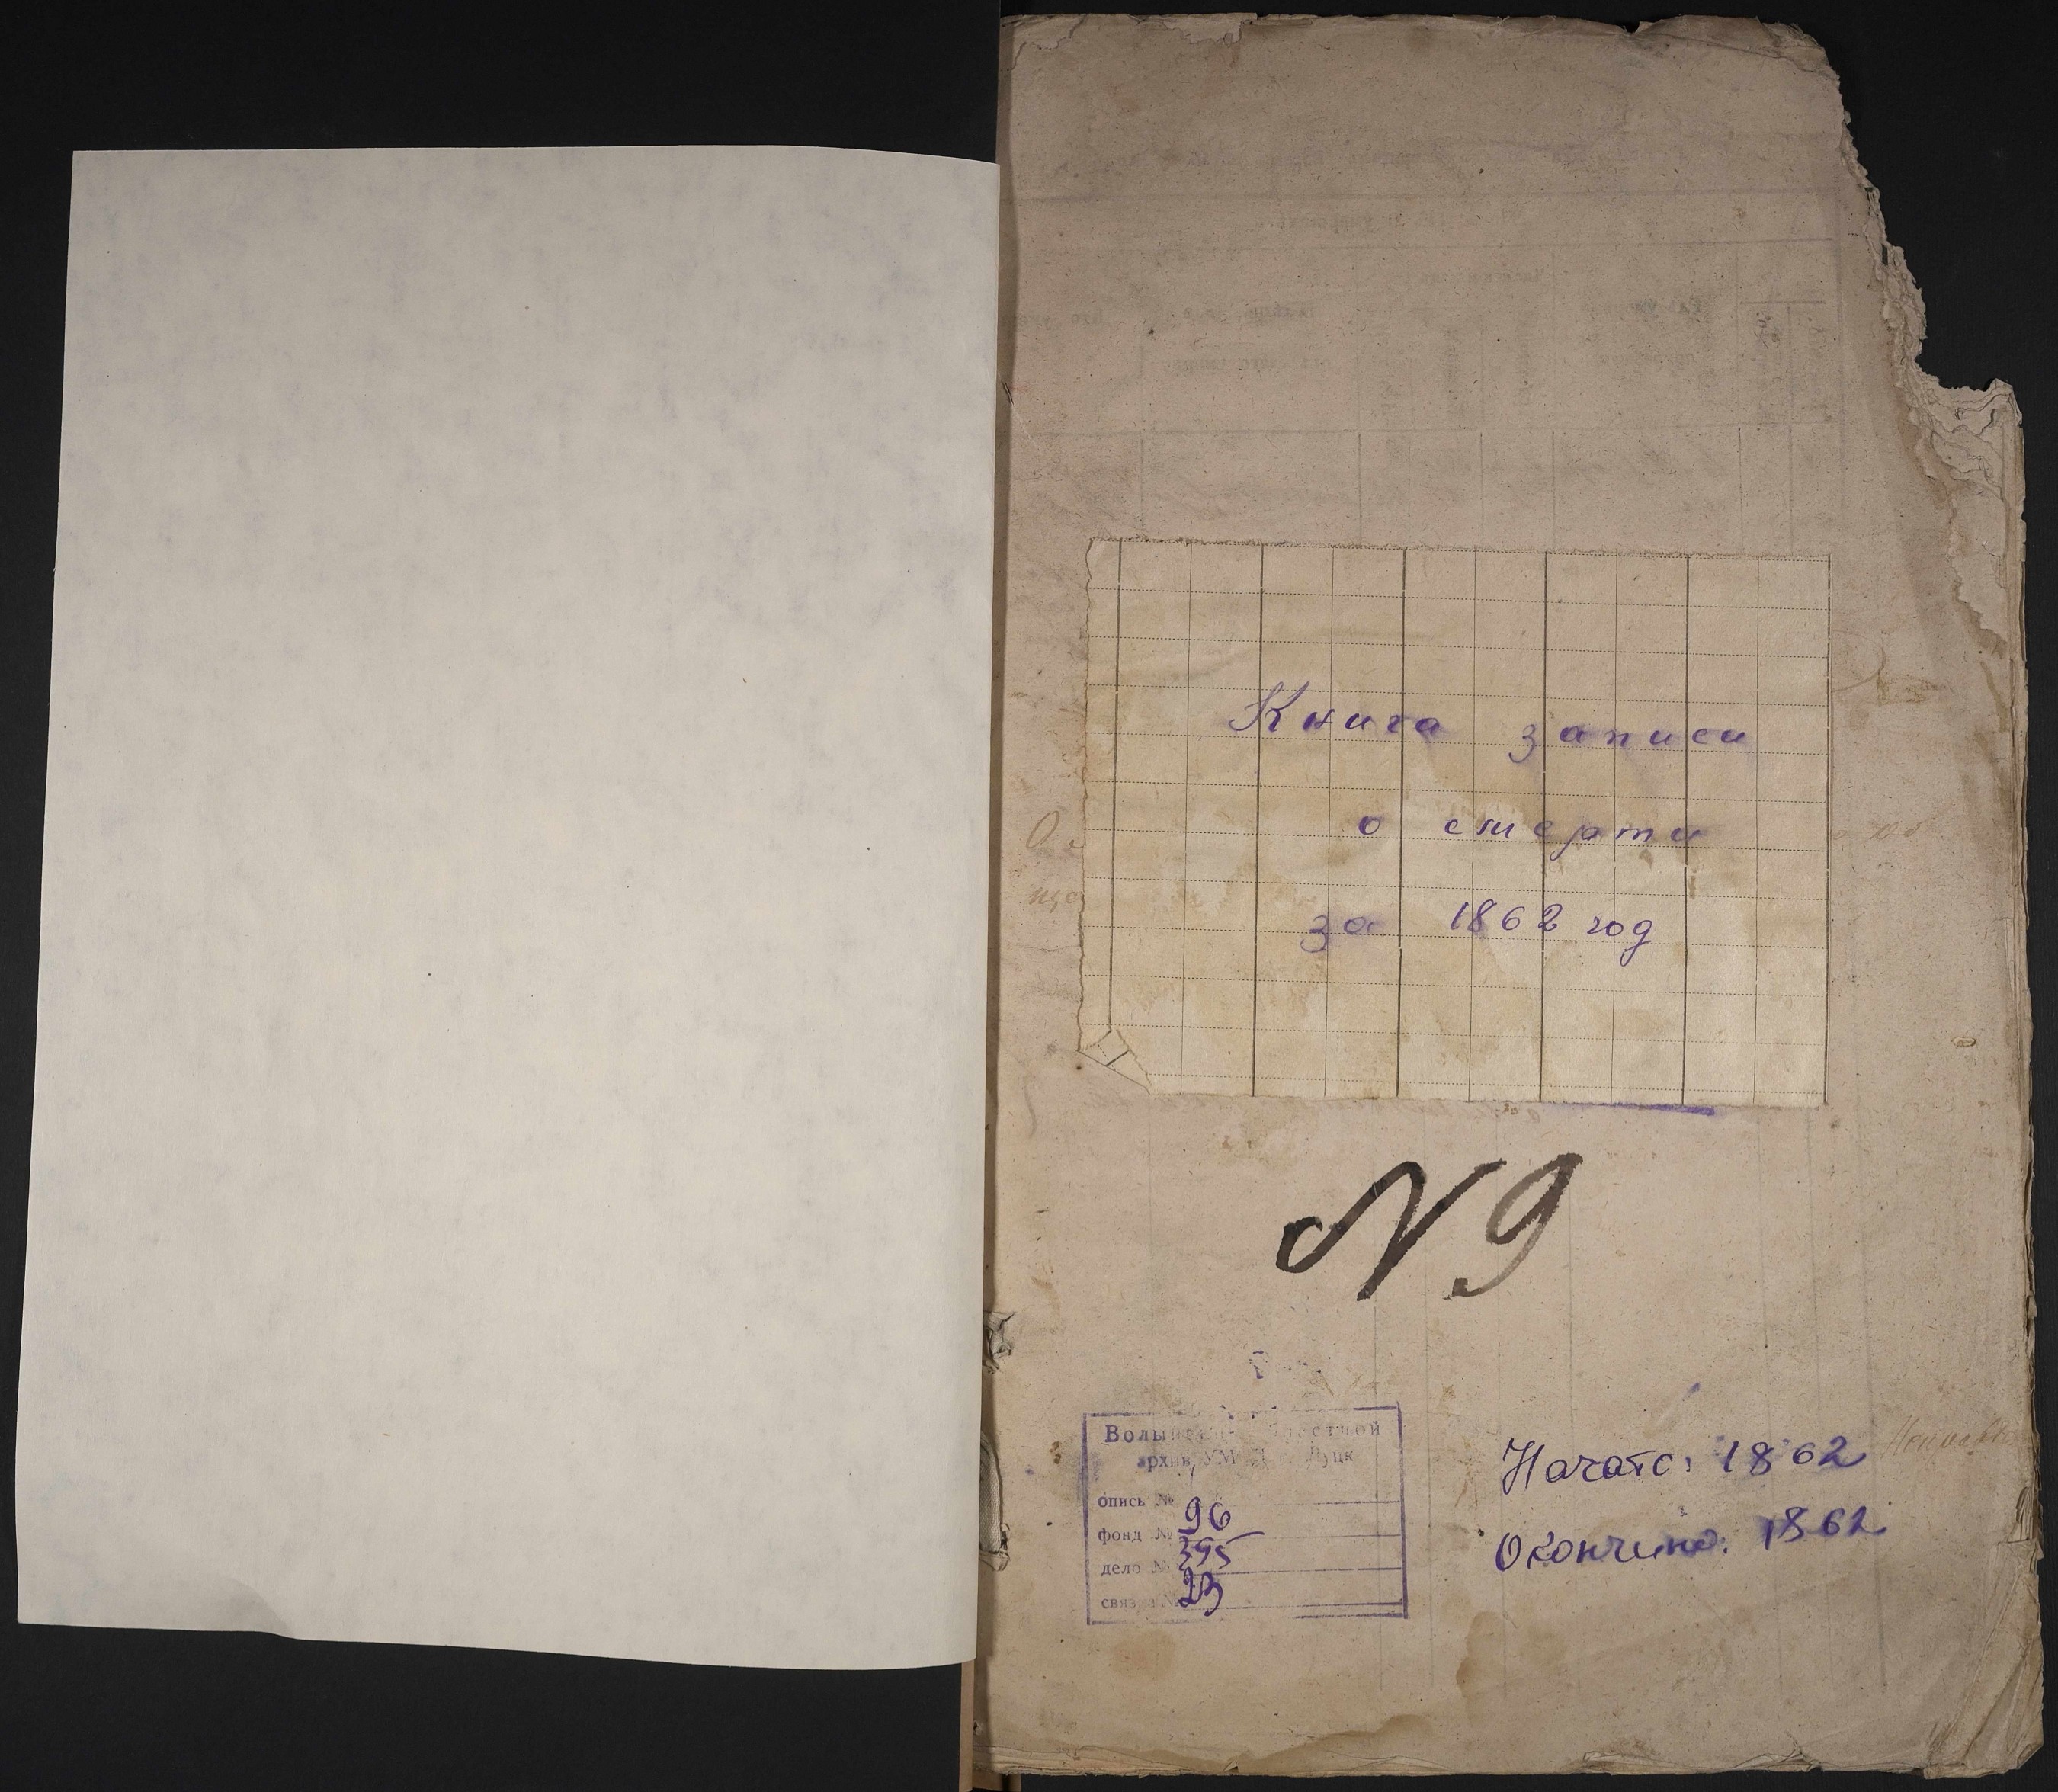 Книга записи
о смерти
за 1862 год
N 9
архив УМ
опись № 96
фонд № 395
дело № 23
связка №
Начато: 1862
Окончено: 1862